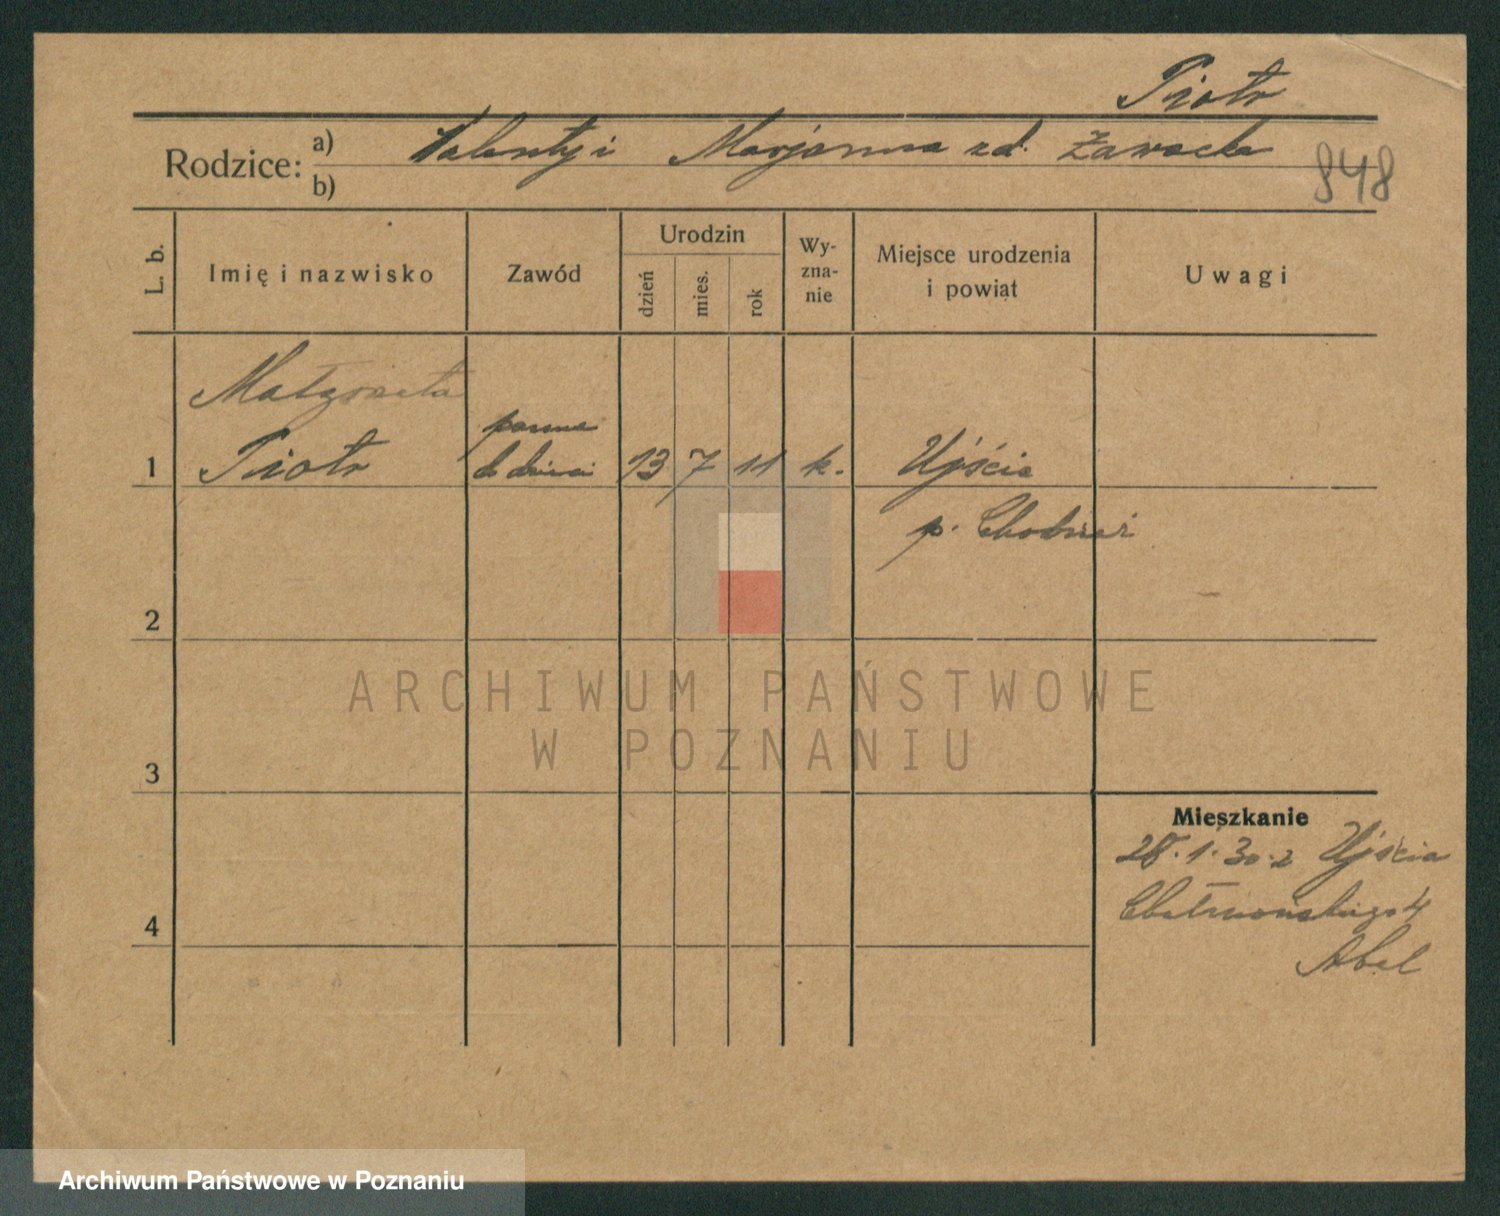 Piotr
Rodzice: a) Walenty i Marjanna zd. Zawacka
b)
848
L. b.
Imię i nazwisko
Zawód
Urodzin
dzień
mies.
rok
Wy-
zna-
nie
Miejsce urodzenia
i powiat
Uwagi
Małgorzata
panna
1 Piotr do dzieci 13 7 11 k. Ujście
p. Chodzież
2
ARCHIWUM PAŃSTWOWE
W POZNANIU
3
Mieszkanie
28.1.30 z Ujścia
4
Abel
Archiwum Państwowe w Poznaniu